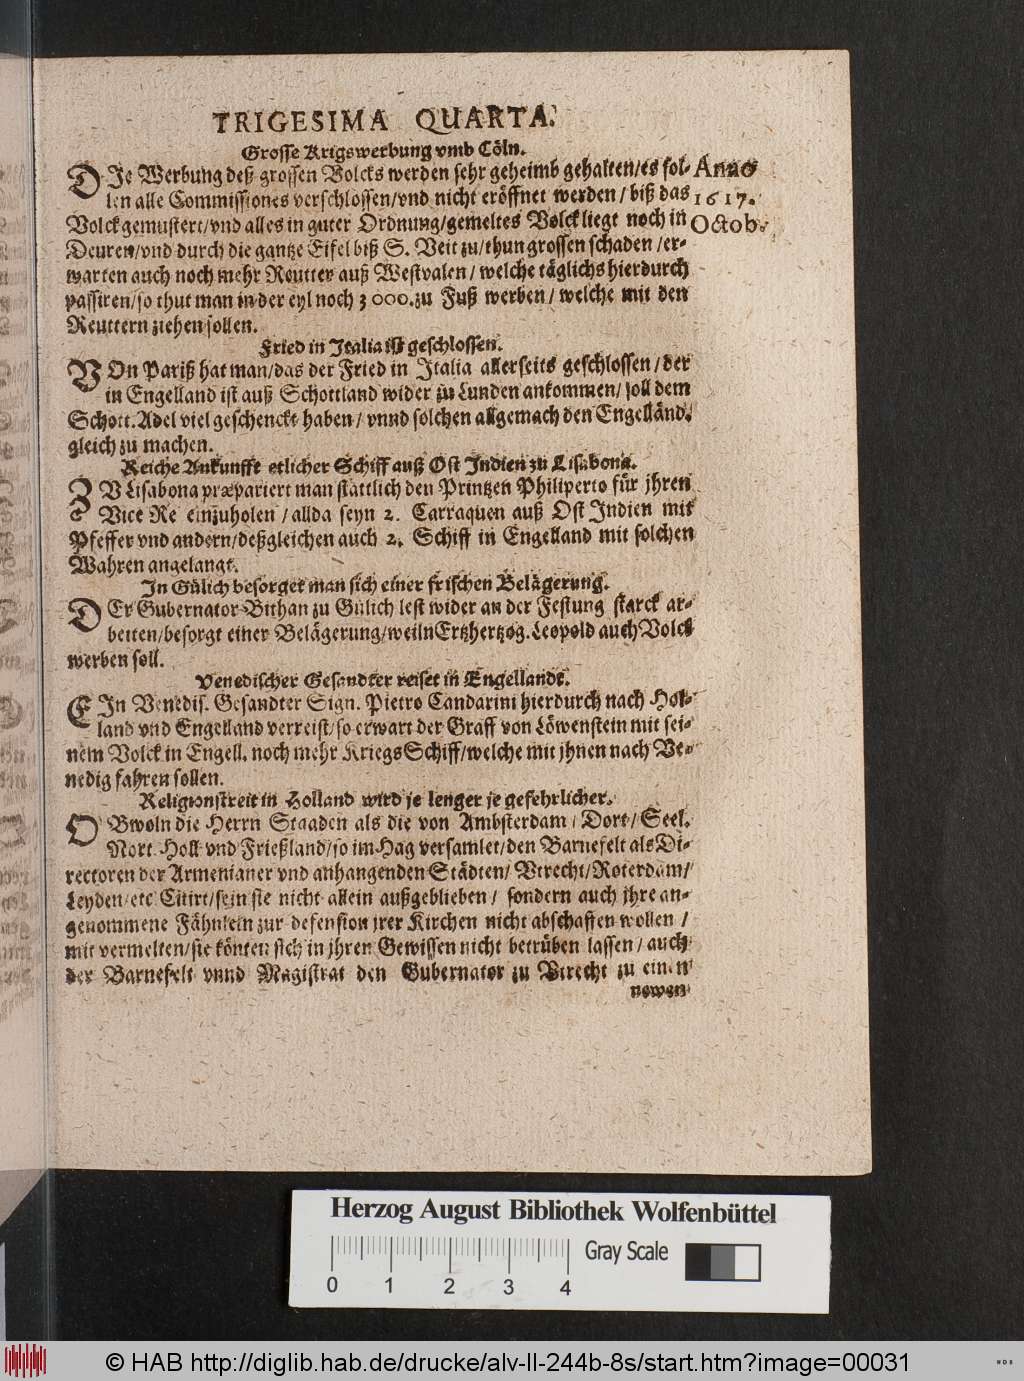 TRIGESIMA QUARTA.
Grosse Krigswerbung vmb Cöln.
DIe Werbung deß grossen Volcks werden sehr geheimb gehalten/es sol- Anno
len alle Commissiones verschlossen/vnd nicht eröffnet werden/biß das 1617.
Volck gemustert/vnd alles in guter Ordnung/gemeltes Volck liegt noch in Octob.
Deuren/vnd durch die gantze Eifel biß S. Veit zu/thun grossen schaden/er-
warten auch noch mehr Reutter auß Westvalen/welche täglichs hierdurch
passiren/so thut man in der eyl noch 3000. zu Fuß werben/welche mit den
Reuttern ziehen sollen.
Fried in Italia ist geschlossen.
VOn Pariß hat man/das der Fried in Italia allerseits geschlossen/der
in Engelland ist auß Schottland wider zu Lunden ankommen/soll dem
Schott. Adel viel geschenckt haben/vnnd solchen allgemach den Engelländ.
gleich zu machen.
Reiche Ankunfft etlicher Schiff auß Ost Indien zu Lisabona.
ZV Lisabona præpariert man stättlich den Printzen Philiperto für jhren
Vice Re einzuholen/allda seyn 2. Carraquen auß Ost Indien mit
Pfeffer vnd andern/deßgleichen auch 2. Schiff in Engelland mit solchen
Wahren angelangt.
In Gülich besorget man sich einer frischen Belägerung.
DEr Gubernator Bithan zu Gülich lest wider an der Festung starck ar-
beiten/besorgt einer Belägerung/weiln Ertzhertzog. Leopold auch Volck
werben soll.
Venedischer Gesandter reiset in Engellandt.
EIn Venedis. Gesandter Sign. Pietro Candarini hierdurch nach Hol-
land vnd Engelland verreist/so erwart der Graff von Löwenstein mit sei-
nem Volck in Engell. noch mehr Kriegs Schiff/welche mit jhnen nach Ve-
nedig fahren sollen.
Religionstreit in Holland wird je lenger je gefehrlicher.
OBwoln die Herrn Staaden als die von Ambsterdam/Dort/Seel.
Nort. Holl vnd Frießland/so im Hag versamlet/den Barnefelt als Di-
rectoren der Armenianer vnd anhangenden Städten/Vtrecht/Roterdam/
Leyden/etc Citirt/sein sie nicht allein außgeblieben/sondern auch jhre an-
genommene Fähnlein zur defension jrer Kirchen nicht abschaffen wollen/
mit vermelten/sie könten sich in jhren Gewissen nicht betrüben lassen/auch
der Barnefelt vnnd Magistrat den Gubernator zu Vtrecht zu einen
newen
Herzog August Bibliothek Wolfenbüttel
Gray Scale
0 1 2 3 4
© HAB http://diglib.hab.de/drucke/alv-ll-244b-8s/start.htm?image=00031